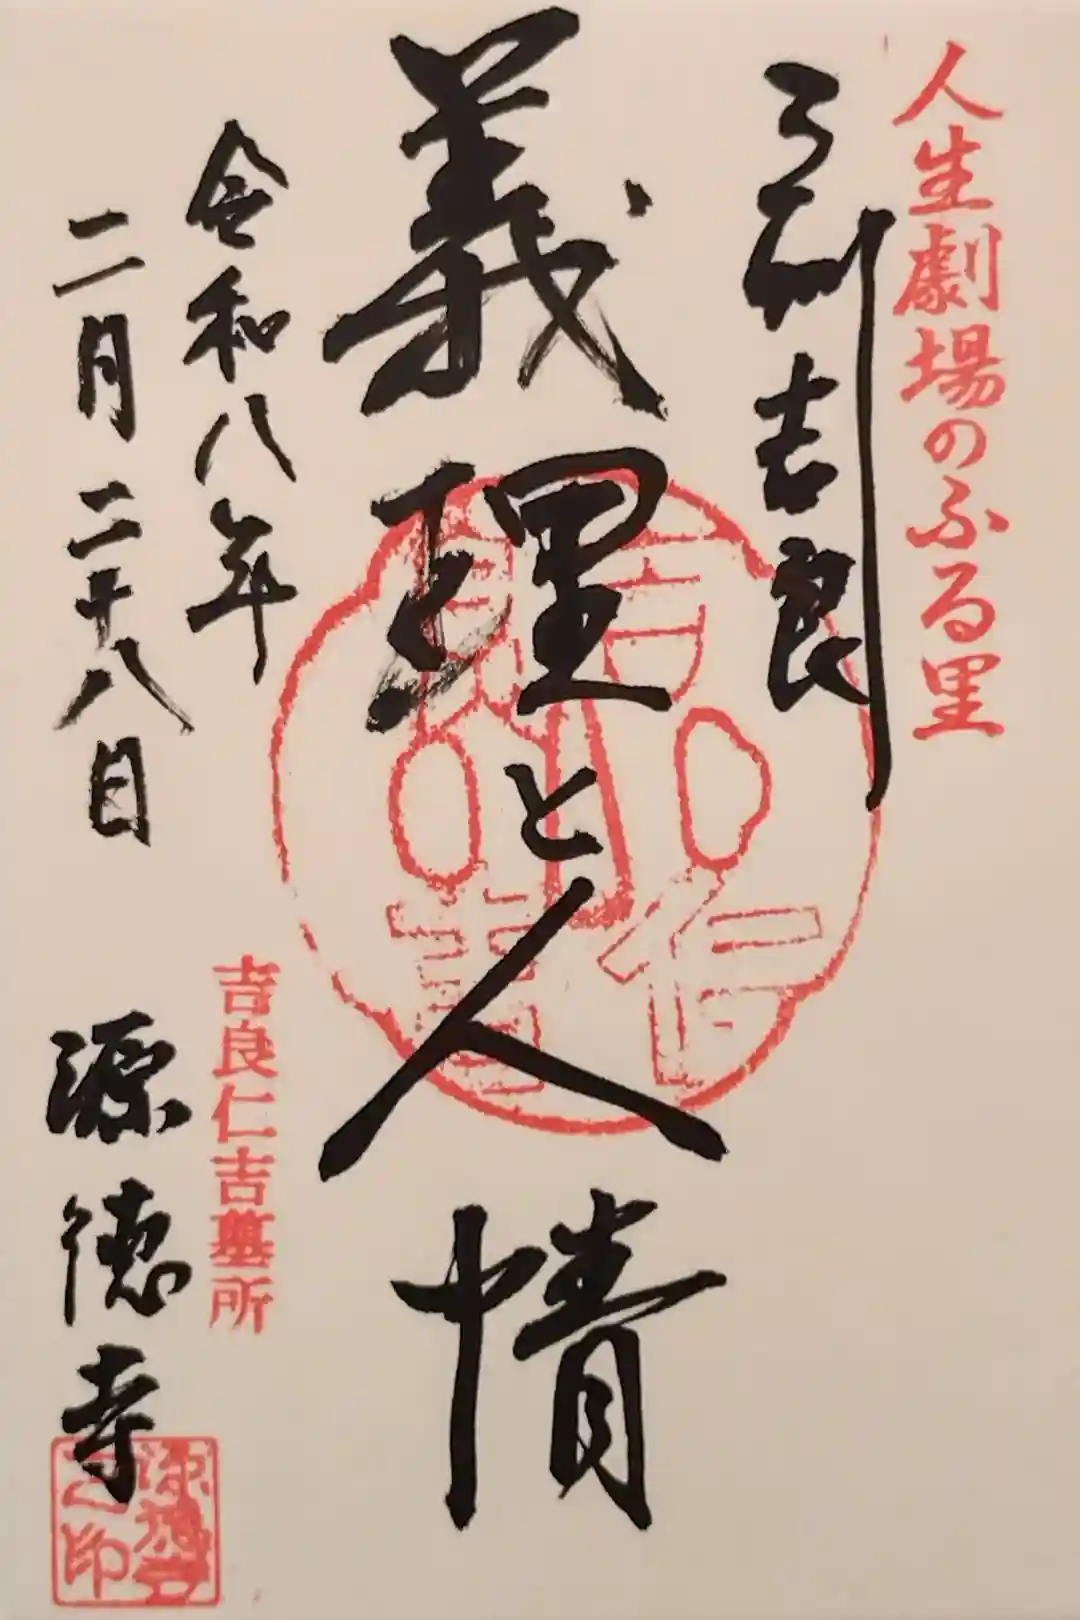 人生劇場のふる里
三州吉良
義理と人情
令和八年
二月二十八日
吉良仁吉墓所
源徳寺
源徳寺之印